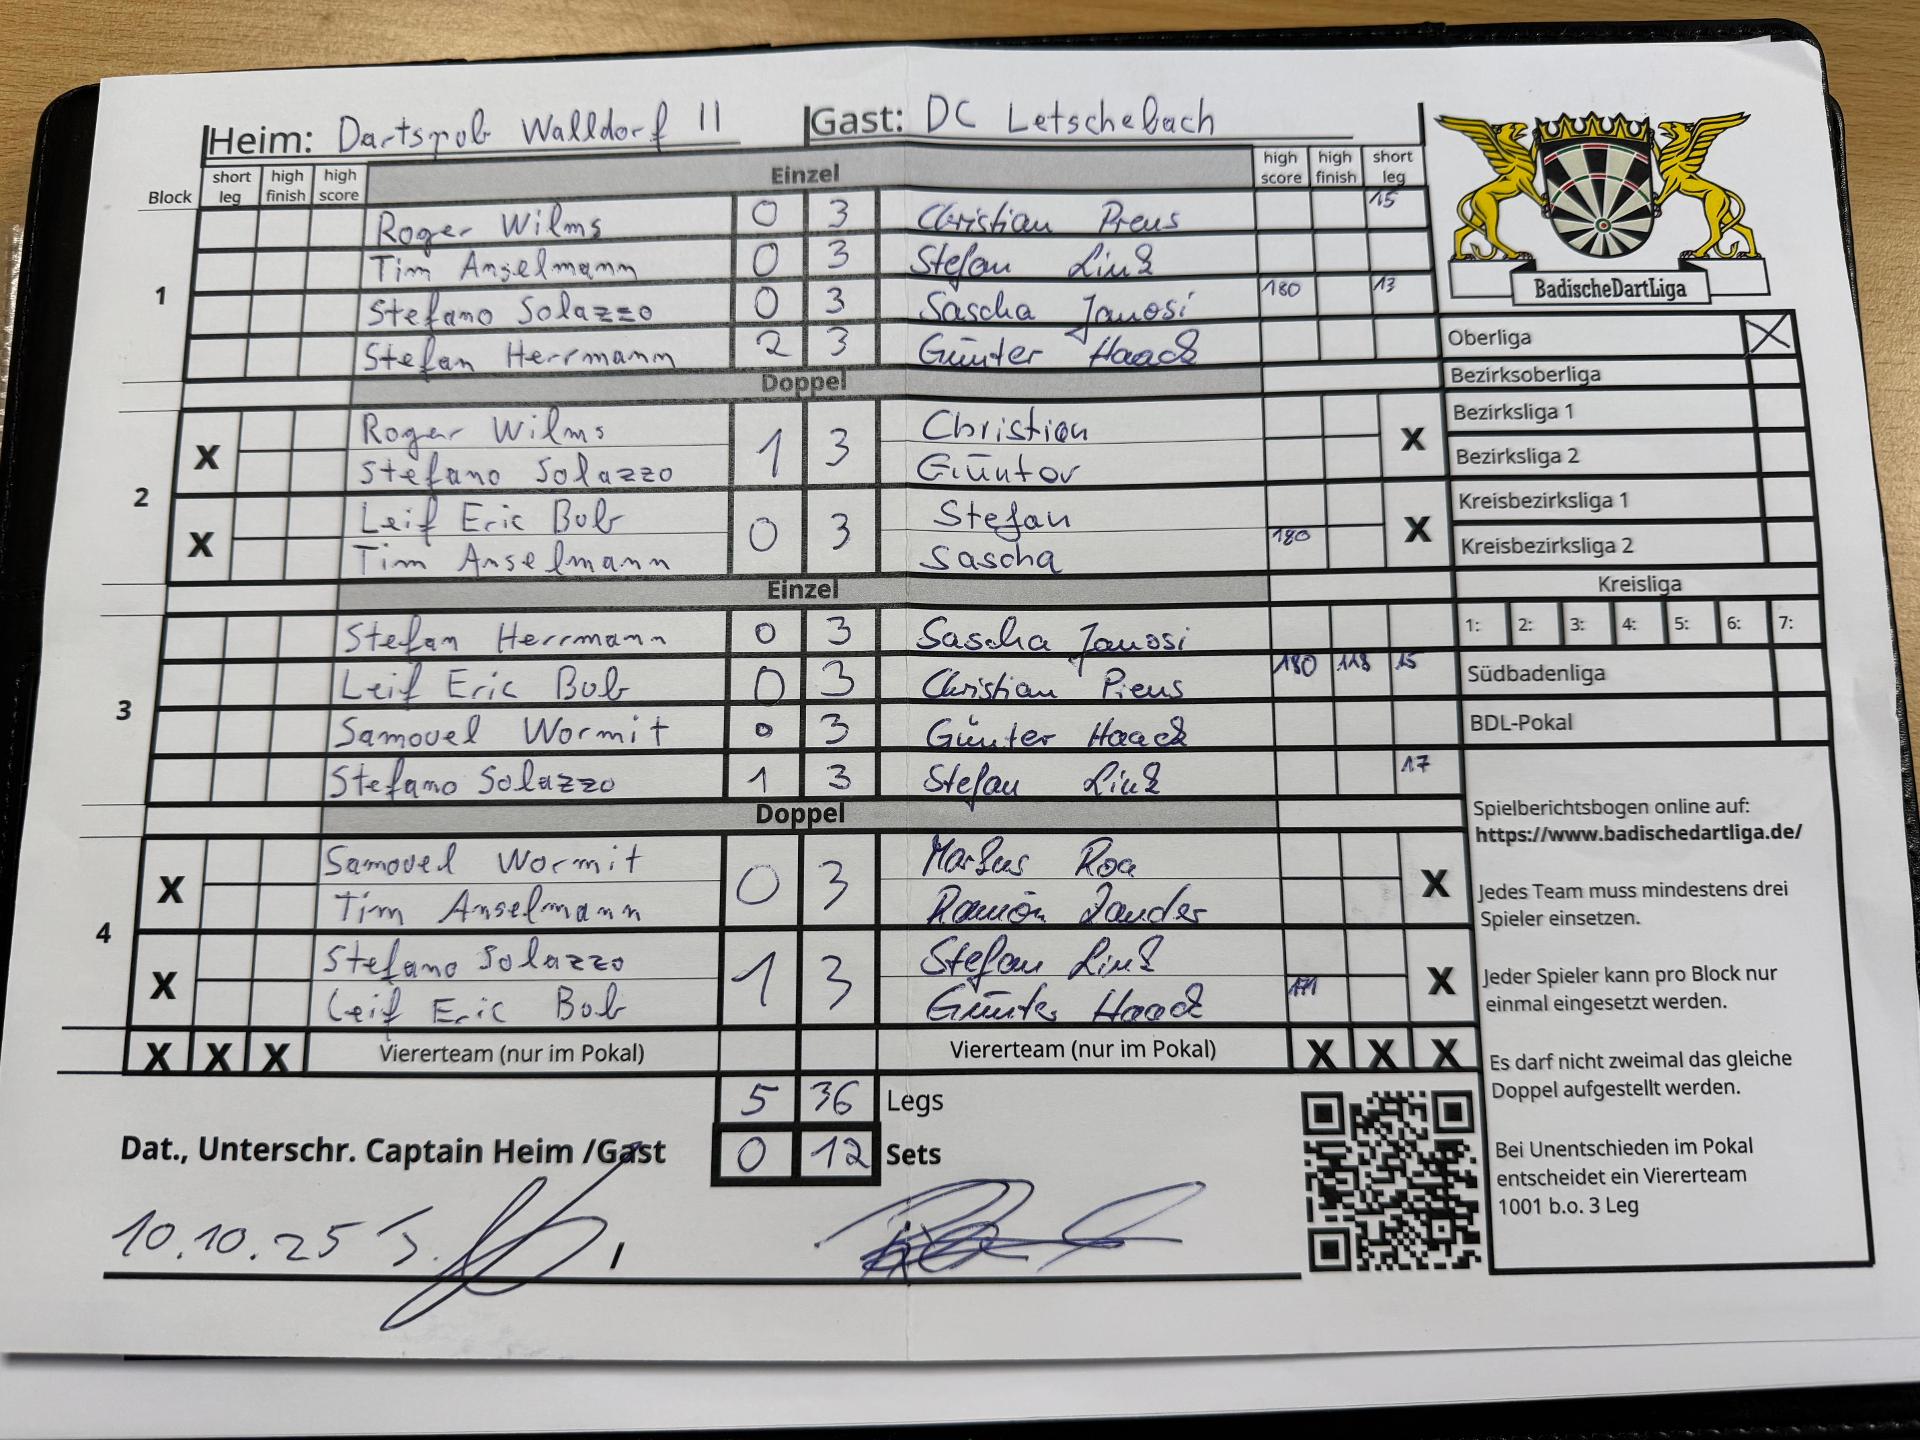 Heim: Dartsmob Walldorf II Gast: DC Letschebach
Block short leg high finish high score Einzel high score high finish short leg
1
Roger Wilms 0 3 Christian Preus 15
Tim Anselmann 0 3 Stefan Link
Stefano Solazzo 0 3 Sascha Janosi 180 13
Stefan Herrmann 2 3 Günter Haack
Doppel
2
X Roger Wilms 1 3 Christian X
Stefano Solazzo Günter
X Leif Eric Bob 0 3 Stefan X
Tim Anselmann Sascha 180
Einzel
3
Stefan Herrmann 0 3 Sascha Janosi
Leif Eric Bob 0 3 Christian Preus 180 118 15
Samouel Wormit 0 3 Günter Haack
Stefano Solazzo 1 3 Stefan Link 17
Doppel
4
X Samouel Wormit 0 3 Markus Roa X
Tim Anselmann Ramón Zander
X Stefano Solazzo 1 3 Stefan Link X
Leif Eric Bob Günter Haack 171
X X X Viererteam (nur im Pokal) Viererteam (nur im Pokal) X X X
5 36 Legs
0 12 Sets
Dat., Unterschr. Captain Heim /Gast
10.10.25 /
BadischeDartLiga
Oberliga X
Bezirksoberliga
Bezirksliga 1
Bezirksliga 2
Kreisbezirksliga 1
Kreisbezirksliga 2
Kreisliga
1: 2: 3: 4: 5: 6: 7:
Südbadenliga
BDL-Pokal
Spielberichtsbogen online auf:
https://www.badischedartliga.de/
Jedes Team muss mindestens drei
Spieler einsetzen.
Jeder Spieler kann pro Block nur
einmal eingesetzt werden.
Es darf nicht zweimal das gleiche
Doppel aufgestellt werden.
Bei Unentschieden im Pokal
entscheidet ein Viererteam
1001 b.o. 3 Leg